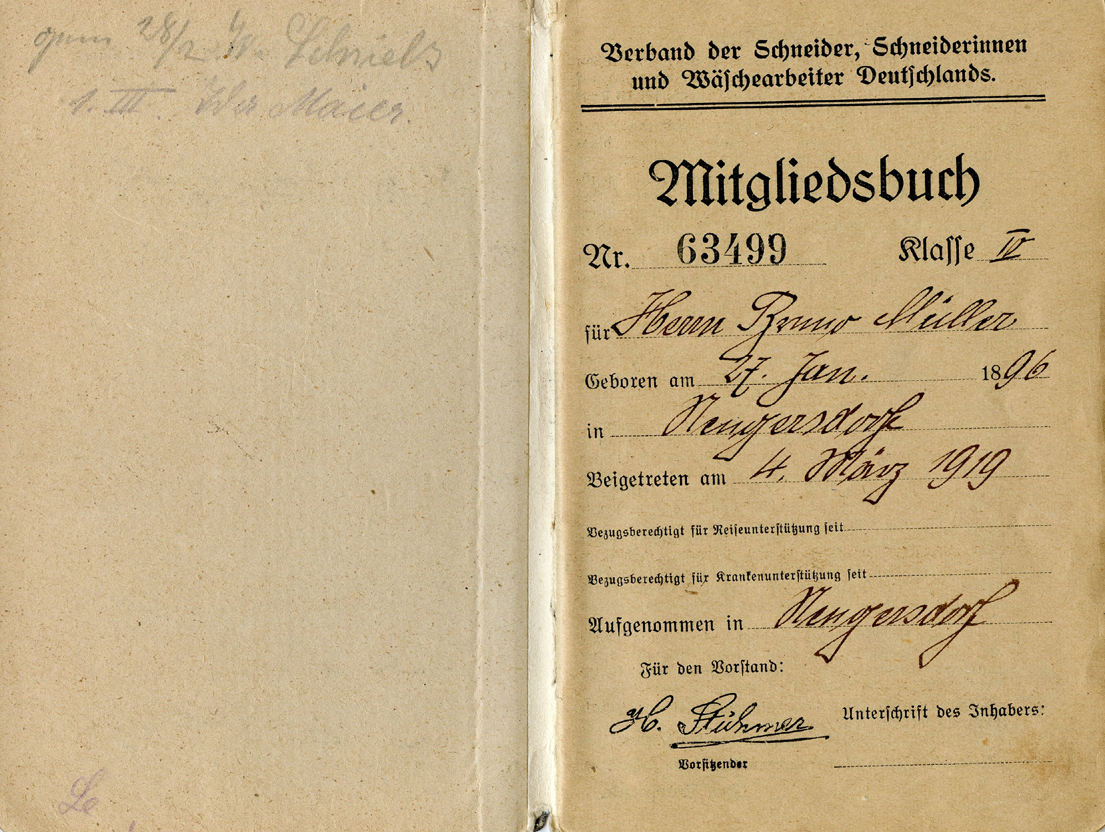 28/2
1. III. Maier.
Le
Verband der Schneider, Schneiderinnen
und Wäschearbeiter Deutschlands.
Mitgliedsbuch
Nr. 63499 Klasse IV
für Herrn Bruno Müller
Geboren am 27. Jan. 1896
in Neugersdorf
Beigetreten am 4. März 1919
Bezugsberechtigt für Reiseunterstützung seit
Bezugsberechtigt für Krankenunterstützung seit
Aufgenommen in Neugersdorf
Für den Vorstand:
H. Stühmer Unterschrift des Inhabers:
Vorsitzender